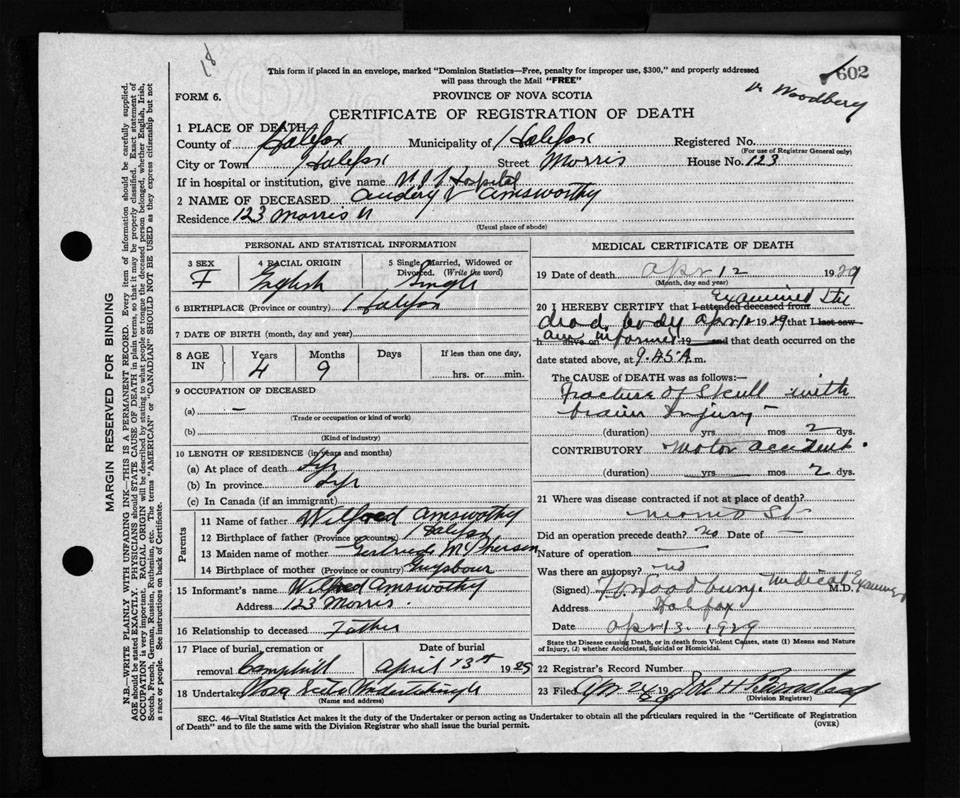 18
This form if placed in an envelope, marked "Dominion Statistics—Free, penalty for improper use, $300," and properly addressed
will pass through the Mail "FREE"
602
Dr Woodbery
FORM 6.
PROVINCE OF NOVA SCOTIA
CERTIFICATE OF REGISTRATION OF DEATH
1 PLACE OF DEATH
County of Halifax Municipality of Halifax Registered No.
(For use of Registrar General only)
City or Town Halifax Street Morris House No. 123
If in hospital or institution, give name Hospital
2 NAME OF DECEASED Audery V Amsworthy
Residence 123 Morris
(Usual place of abode)
PERSONAL AND STATISTICAL INFORMATION
3 SEX F
4 RACIAL ORIGIN English
5 Single, Married, Widowed or Divorced. (Write the word) Single
6 BIRTHPLACE (Province or country) Halifax
7 DATE OF BIRTH (month, day and year)
8 AGE IN Years 4 Months 9 Days If less than one day, hrs. or min.
9 OCCUPATION OF DECEASED
(a) —
(Trade or occupation or kind of work)
(b)
(Kind of industry)
10 LENGTH OF RESIDENCE (in years and months)
(a) At place of death
(b) In province
(c) In Canada (if an immigrant)
Parents
11 Name of father Wilfred Amsworthy
12 Birthplace of father (Province or country) Halifax
13 Maiden name of mother Gertrude McPherson
14 Birthplace of mother (Province or country) Guysbour
15 Informant's name Wilfred Amsworthy
Address 123 Morris.
16 Relationship to deceased Father
17 Place of burial, cremation or removal Camphill
Date of burial April 13th 1929
18 Undertaker Nova
(Name and address)
MEDICAL CERTIFICATE OF DEATH
19 Date of death Apr 12 1929
(Month, day and year)
20 I HEREBY CERTIFY that I attended deceased from examined the
dead body Apr 12 1929 that I last saw
h alive on am informed 19 and that death occurred on the
date stated above, at 9.45 A m.
The CAUSE of DEATH was as follows:—
Fracture of Skull with
brain Injury
(duration) yrs mos 2 dys.
CONTRIBUTORY motor accident.
(duration) yrs mos 2 dys.
21 Where was disease contracted if not at place of death?
Morris St
Did an operation precede death? no Date of —
Nature of operation —
Was there an autopsy? no
(Signed) Woodbury. Medical Examiner M.D.
Address Halifax
Date Apr 13 1929
State the Disease causing Death, or in death from Violent Causes, state (1) Means and Nature
of Injury, (2) whether Accidental, Suicidal or Homicidal.
22 Registrar's Record Number
23 Filed Apr 24 1929
(Division Registrar)
SEC. 46—Vital Statistics Act makes it the duty of the Undertaker or person acting as Undertaker to obtain all the particulars required in the "Certificate of Registration
of Death" and to file the same with the Division Registrar who shall issue the burial permit.
(OVER)
MARGIN RESERVED FOR BINDING
N.B.—WRITE PLAINLY WITH UNFADING INK—THIS IS A PERMANENT RECORD. Every item of information should be carefully supplied.
AGE should be stated EXACTLY. PHYSICIANS should STATE CAUSE OF DEATH in plain terms, so that it may be properly classified. Exact statement of
OCCUPATION is very important. RACIAL ORIGIN will be described by stating to what people or tongue the deceased person belonged, whether English, Irish,
Scotch, French, German, Russian, Ruthenian, etc. The terms "AMERICAN" or "CANADIAN" SHOULD NOT BE USED as they express citizenship but not
a race or people. See instructions on back of Certificate.